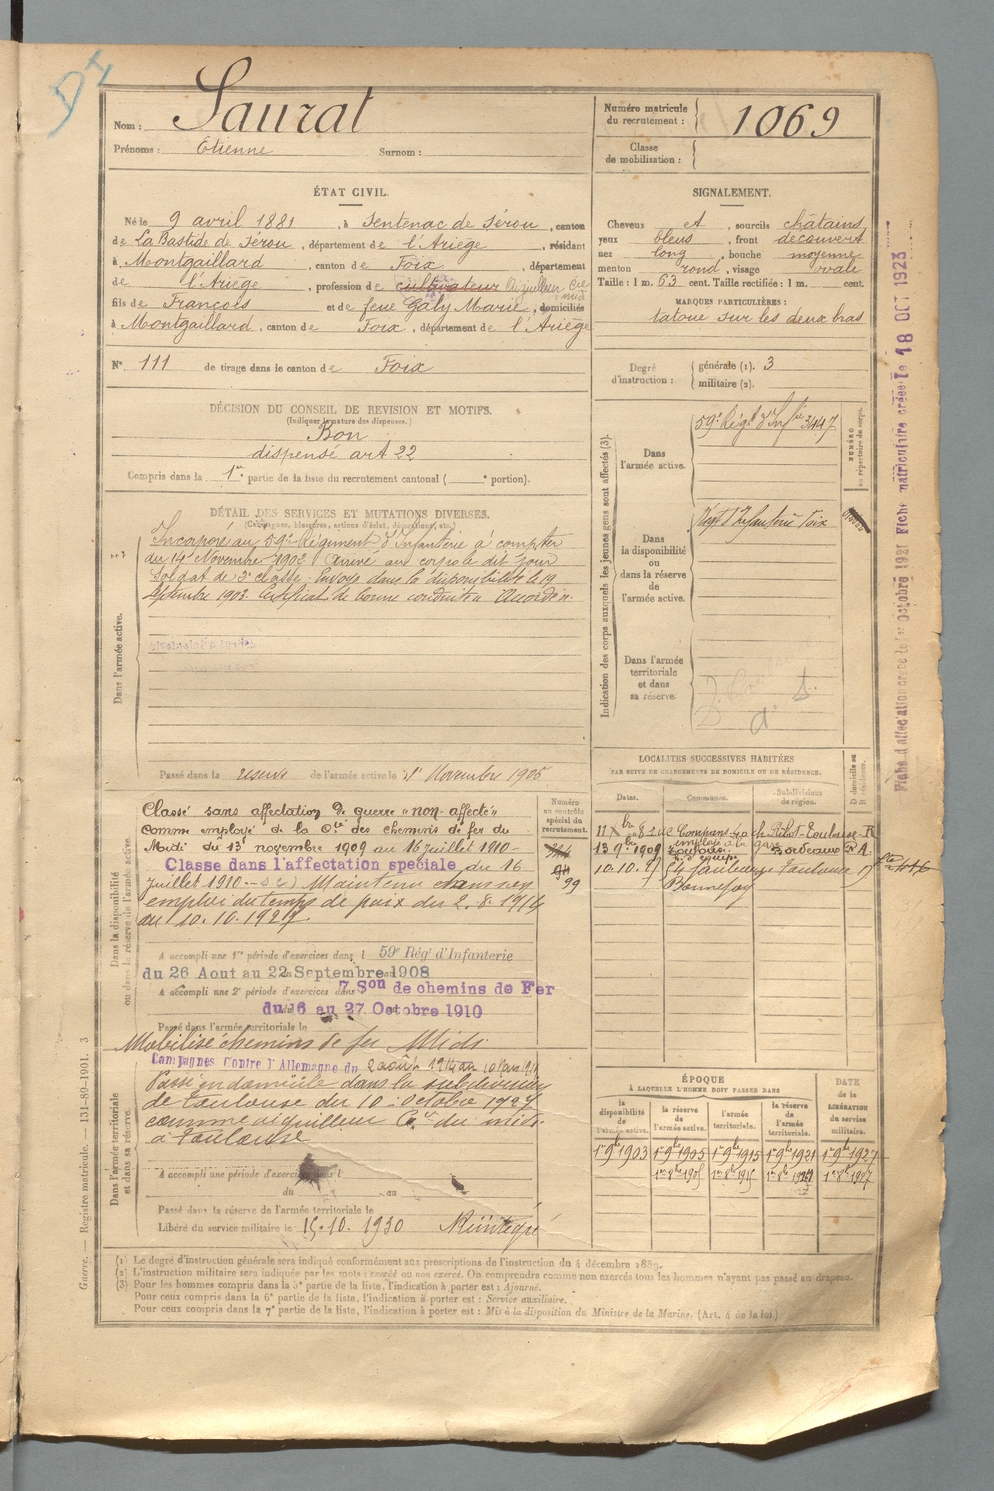 DI
Nom : Saurat
Prénoms : Etienne Surnom :
Numéro matricule du recrutement : 1069
Classe de mobilisation :
ÉTAT CIVIL.
Né le 9 avril 1881, à Sentenac de Sérou, canton
de La Bastide de Sérou, département de l'Ariège, résidant
à Montgaillard, canton de Foix, département
de l'Ariège, profession de cultivateur Aiguilleur Cie Midi
fils de François et de feue Galy Marie, domiciliés
à Montgaillard, canton de Foix, département de l'Ariège
N° 111 de tirage dans le canton de Foix
DÉCISION DU CONSEIL DE REVISION ET MOTIFS.
(Indiquer la nature des dispenses.)
Bon
dispensé art 22
Compris dans la 1re partie de la liste du recrutement cantonal ( e portion).
SIGNALEMENT.
Cheveux et, sourcils châtains
yeux bleus, front découvert
nez long, bouche moyenne
menton rond, visage ovale
Taille : 1 m. 63 cent. Taille rectifiée : 1 m. cent.
MARQUES PARTICULIÈRES :
tatoué sur les deux bras
Degré d'instruction : générale (1). 3
militaire (2).
DÉTAIL DES SERVICES ET MUTATIONS DIVERSES.
(Campagnes, blessures, actions d'éclat, décorations, etc.)
Dans l'armée active.
Incorporé au 59e Régiment d'Infanterie à compter
du 14 Novembre 1902 Arrivé au corps le dit jour
Soldat de 2e classe. Envoyé dans la disponibilité le 19
Septembre 1903. Certificat de bonne conduite Accordé.
Passé dans la réserve de l'armée active le 1er Novembre 1905
Indication des corps auxquels les jeunes gens sont affectés (3).
Dans l'armée active.
59e Régt d'Infrie 3447
NUMÉRO au répertoire du corps.
Dans la disponibilité ou dans la réserve de l'armée active.
Régt d'Infanterie Foix
Dans l'armée territoriale et dans sa réserve.
Dans la disponibilité ou dans la réserve de l'armée active.
Classé sans affectation de guerre "non affecté"
comme employé de la Cie des chemins de fer du
Midi du 13 novembre 1909 au 16 juillet 1910
Classé dans l'affectation spéciale du 16
juillet 1910 Maintenu dans son
emploi du temps de paix du 2.8.1914
au 10.10.1927
Numéro au contrôle spécial du recrutement.
99
A accompli une 1re période d'exercices dans l 59e Rég. d'Infanterie
du 26 Aout au 22 Septembre 1908
A accompli une 2e période d'exercices dans 7 Son de chemins de Fer
du 6 au 27 Octobre 1910
Passé dans l'armée territoriale le
Mobilisé chemins de fer Midi
Dans l'armée territoriale et dans sa réserve.
Campagnes Contre l'Allemagne du 2 août 1914 au
Passé en domicile dans la subdivision
de Toulouse du 10 Octobre 1927
comme aiguilleur Cie du midi
à Toulouse
A accompli une période d'exercices dans l
du au
Passé dans la réserve de l'armée territoriale le
Libéré du service militaire le 15.10.1930
LOCALITÉS SUCCESSIVES HABITÉES
PAR SUITE DE CHANGEMENTS DE DOMICILE OU DE RÉSIDENCE.
Dates. Communes. Subdivisions de région. D domicile ou R résidence.
Toulouse R
13 9bre 1909 Toulouse employé à la gare Bordeaux R A
10.10.27 54 faubourg Toulouse D
Bonnefoy
ÉPOQUE
À LAQUELLE L'HOMME DOIT PASSER DANS
la disponibilité de l'armée active.
la réserve de l'armée active.
l'armée territoriale.
la réserve de l'armée territoriale.
DATE de la LIBÉRATION du service militaire.
1er 9bre 1903 1er 9bre 1905 1er 9bre 1915 1er 9bre 1921 1er 9bre 1927
Fiche matriculaire créée le 18 OCT 1923
Guerre. — Registre matricule. — 131-89-1901. 3
(1) Le degré d'instruction générale sera indiqué conformément aux prescriptions de l'instruction du 4 décembre 1889.
(2) L'instruction militaire sera indiquée par les mots : exercé ou non exercé. On comprendra comme non exercés tous les hommes n'ayant pas passé au drapeau.
(3) Pour les hommes compris dans la 5e partie de la liste, l'indication à porter est : Ajourné.
Pour ceux compris dans la 6e partie de la liste, l'indication à porter est : Service auxiliaire.
Pour ceux compris dans la 7e partie de la liste, l'indication à porter est : Mis à la disposition du Ministre de la Marine. (Art. 4 de la loi.)